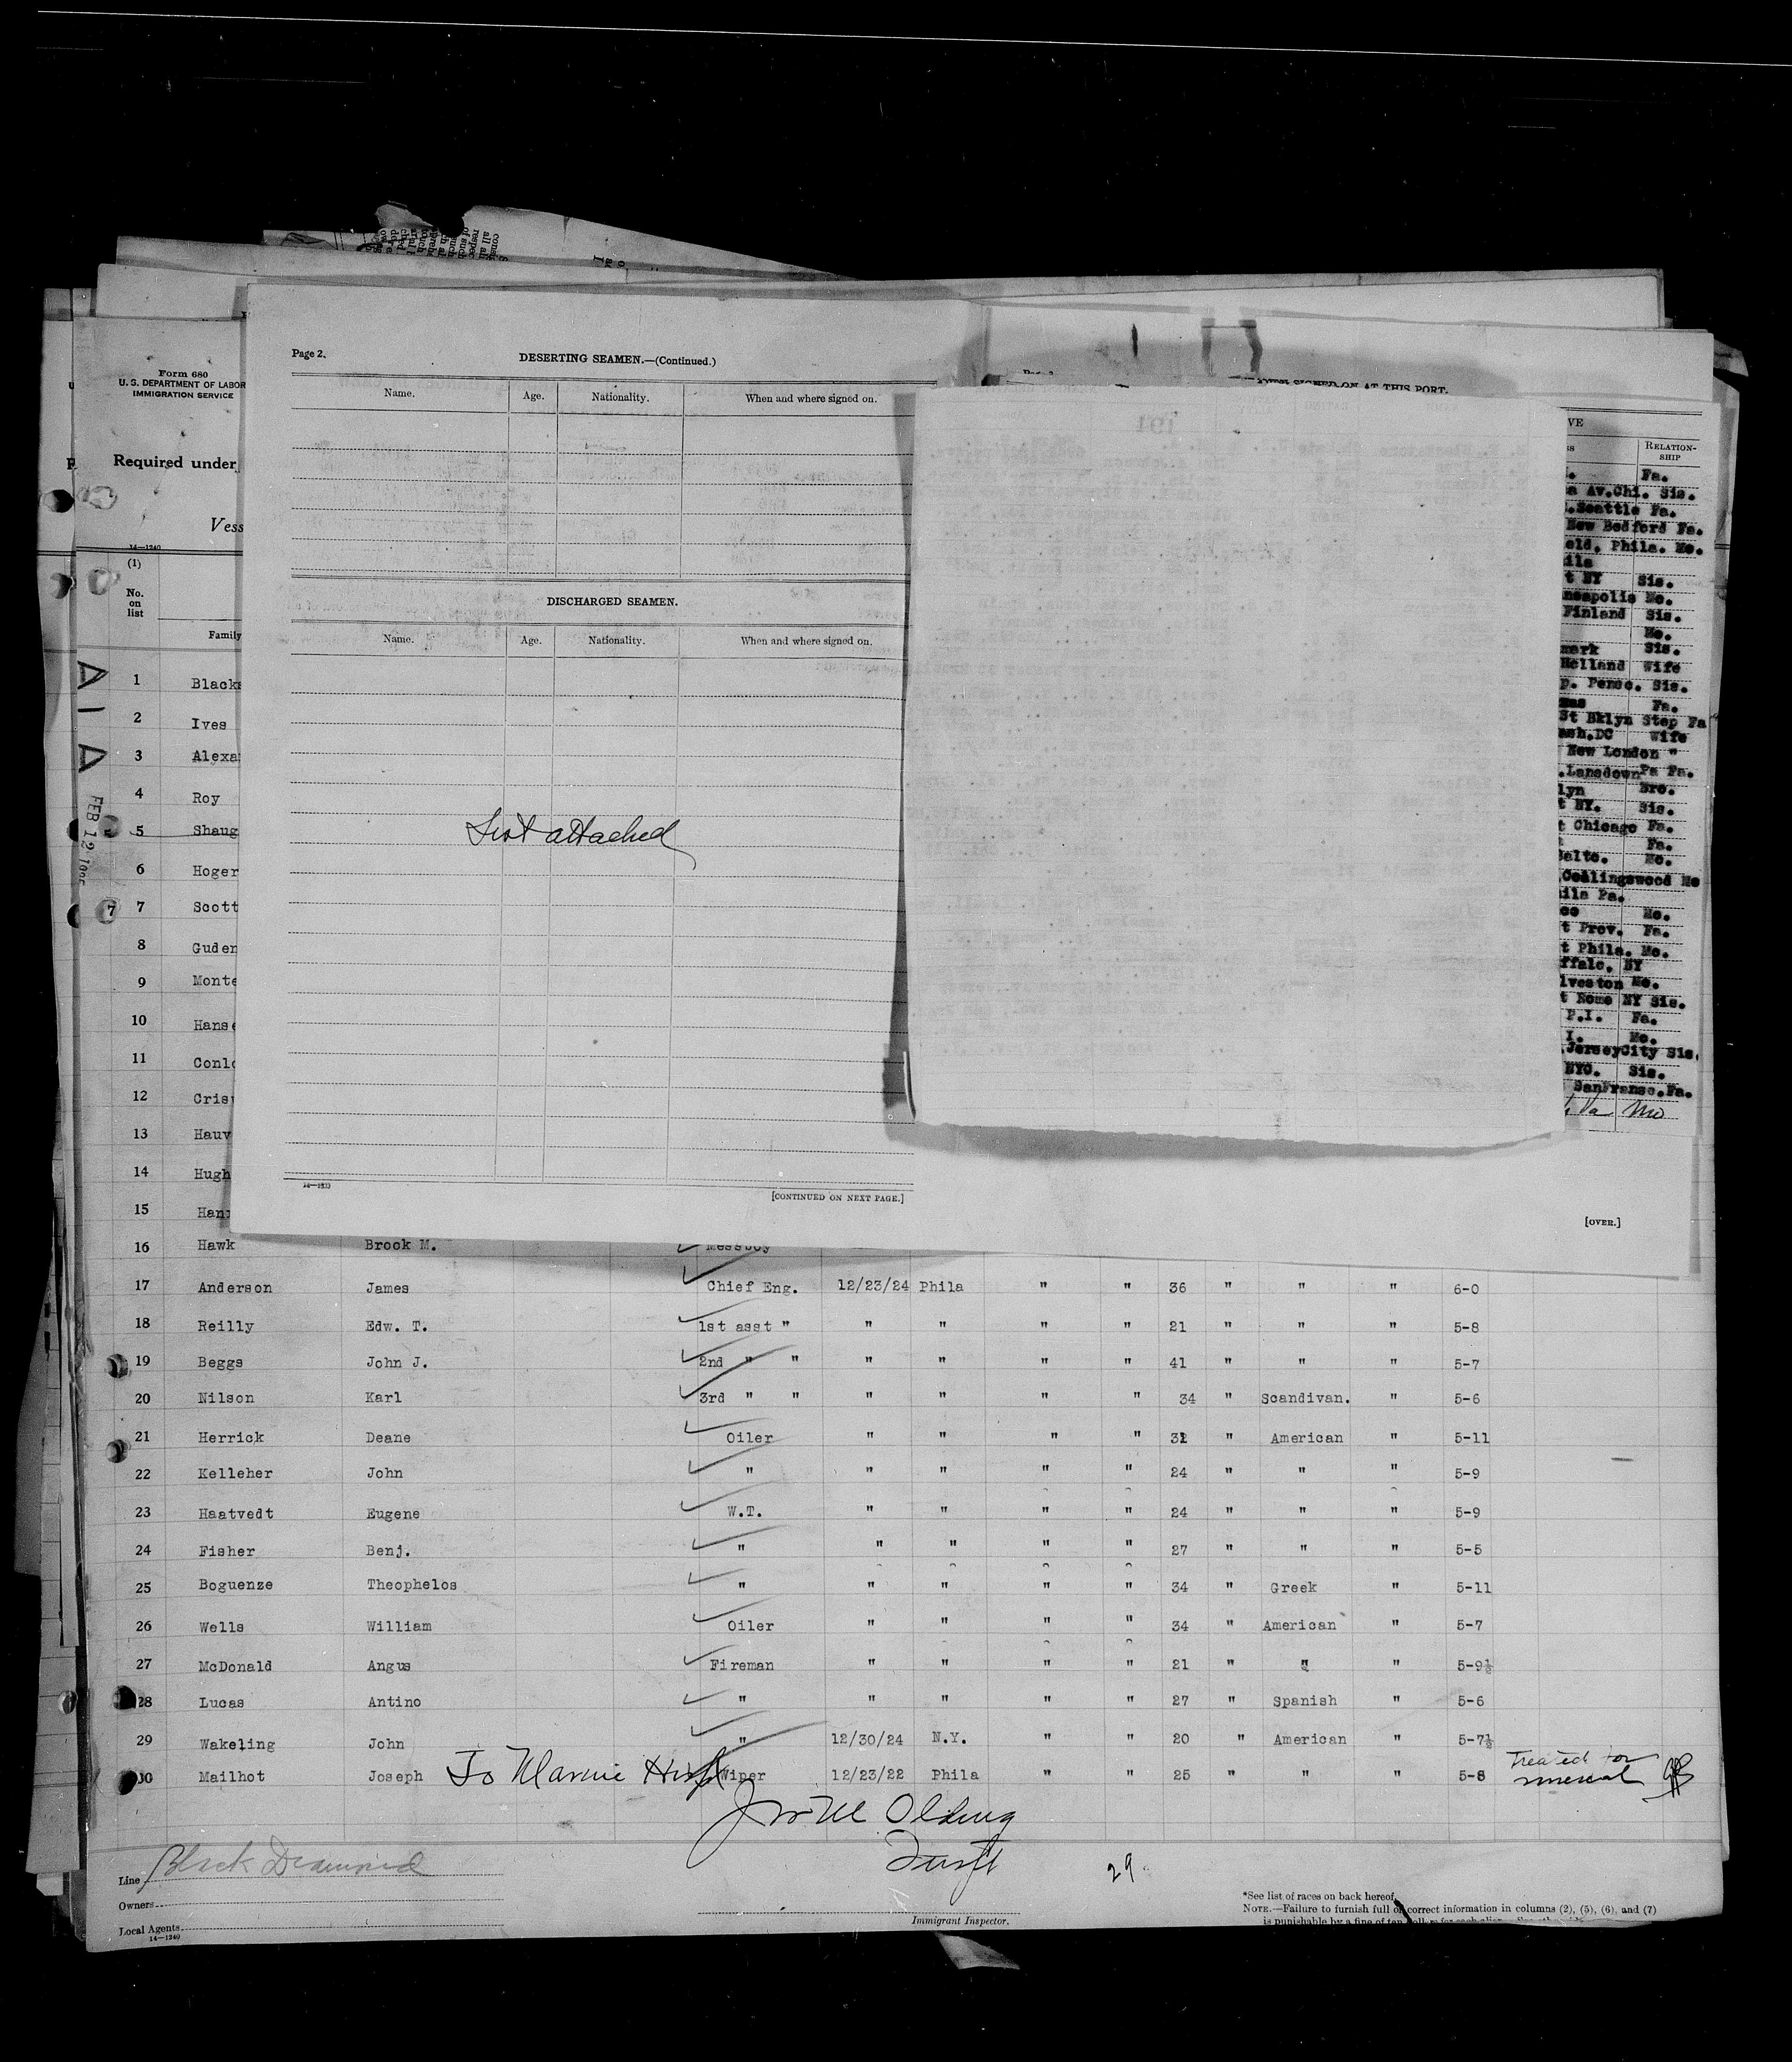 Form 680
U. S. DEPARTMENT OF LABOR
IMMIGRATION SERVICE
Required under
Vess
14—1240
(1)
No.
on
list
Family
1 Blacks
2 Ives
3 Alexa
4 Roy
5 Shaug
6 Hoger
7 7 Scott
8 Guden
9 Monte
10 Hanse
11 Conlo
12 Cris
13 Hauv
14 Hugh
15 Han
FEB 12
Page 2.
DESERTING SEAMEN.—(Continued.)
Name. Age. Nationality. When and where signed on.
DISCHARGED SEAMEN.
Name. Age. Nationality. When and where signed on.
List attached
[CONTINUED ON NEXT PAGE.]
SIGNED ON AT THIS PORT.
191
VE
RELATION-
SHIP
Fa.
a Av.Chi. Sis.
.Seattle Fa.
New Bedford Fa.
eld, Phila. Mo.
ila
t NY Sis.
neapolis Mo.
Finland Sis.
Mo.
mark Sis.
Holland Wife
p. Pensc. Sis.
mas Fa.
St Bklyn Step Fa
ash.DC Wife
New London "
.Lansdown Pa Fa.
lyn Bro.
t NY. Sis.
t Chicago Fa.
Fa.
Balto. Mo.
.Collingswood Mo
ila Pa.
ce Mo.
t Prov. Fa.
t Phila. Mo.
ffalo. NY
lveston Mo.
t Rome NY Sis.
P.I. Fa.
I. Mo.
.JerseyCity Sis.
NYC. Sis.
SanFransc.Fa.
Va Mo
[OVER.]
16 Hawk Brook M. Messboy
17 Anderson James Chief Eng. 12/23/24 Phila " " 36 " " " 6-0
18 Reilly Edw. T. 1st asst " " " " " 21 " " " 5-8
19 Beggs John J. 2nd " " " " " " 41 " " " 5-7
20 Nilson Karl 3rd " " " " " " 34 " Scandivan. " 5-6
21 Herrick Deane Oiler " " " " 32 " American " 5-11
22 Kelleher John " " " " " 24 " " " 5-9
23 Haatvedt Eugene W.T. " " " " 24 " " " 5-9
24 Fisher Benj. " " " " " 27 " " " 5-5
25 Boguenze Theophelos " " " " " 34 " Greek " 5-11
26 Wells William Oiler " " " " 34 " American " 5-7
27 McDonald Angus Fireman " " " " 21 " " " 5-9½
28 Lucas Antino " " " " " 27 " Spanish " 5-6
29 Wakeling John " 12/30/24 N.Y. " " 20 " American " 5-7½
30 Mailhot Joseph To Marine Hosp Wiper 12/23/22 Phila " " 25 " " " 5-8 Treated for
Line Black Diamond
29
Owners
Local Agents
14—1240
Immigrant Inspector.
*See list of races on back hereof.
NOTE.—Failure to furnish full or correct information in columns (2), (5), (6), and (7)
is punishable by a fine of ten dollars for each alien